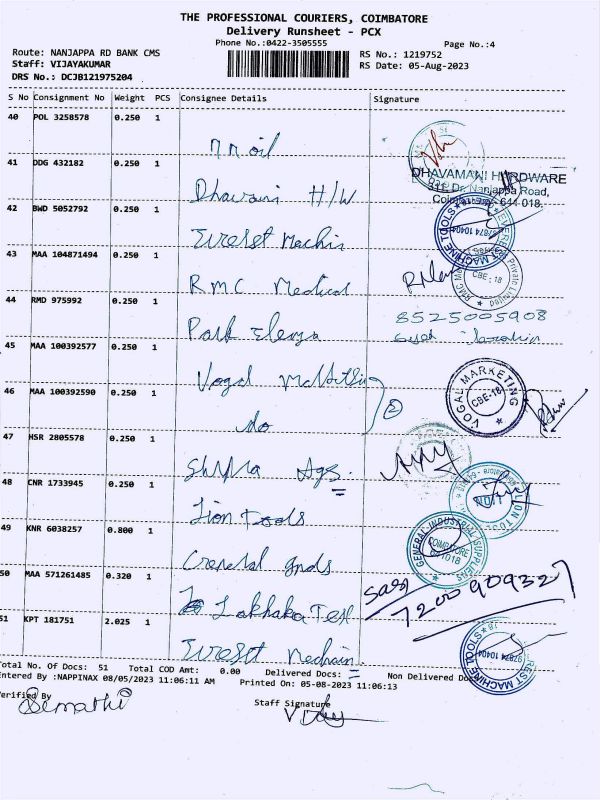 THE PROFESSIONAL COURIERS, COIMBATORE
Delivery Runsheet - PCX
Phone No.:0422-3505555
Page No.:4
Route: NANJAPPA RD BANK CMS
RS No.: 1219752
Staff: VIJAYAKUMAR
RS Date: 05-Aug-2023
DRS No.: DCJB121975204
S No Consignment No Weight PCS Consignee Details Signature
40 POL 3258578 0.250 1
oil
41 DDG 432182 0.250 1
DHAVAMANI HARDWARE
311, Dr. Nanjappa Road,
641 018.
H/W
42 BWD 5052792 0.250 1
EVEREST MACHINE TOOLS
97874 10404
43 MAA 104871494 0.250 1
RMC Medical
Private Limited
CBE - 18
44 RMD 975992 0.250 1
8525005908
Park
45 MAA 100392577 0.250 1
Vogal
VOGAL MARKETING
CBE-18
46 MAA 100392590 0.250 1
do
2
47 HSR 2805578 0.250 1
Shipra Ags.
48 CNR 1733945 0.250 1
Lion Tools
LION TOOLS
49 KNR 6038257 0.800 1
GENERAL INDUSTRIAL SUPPLIERS
COIMBATORE
50 MAA 571261485 0.320 1
7200909327
51 KPT 181751 2.025 1
97874 10404
EVEREST MACHINE TOOLS
Total No. Of Docs: 51 Total COD Amt: 0.00 Delivered Docs: Non Delivered Docs
Entered By :NAPPINAX 08/05/2023 11:06:11 AM Printed On: 05-08-2023 11:06:13
Verified By
Staff Signature